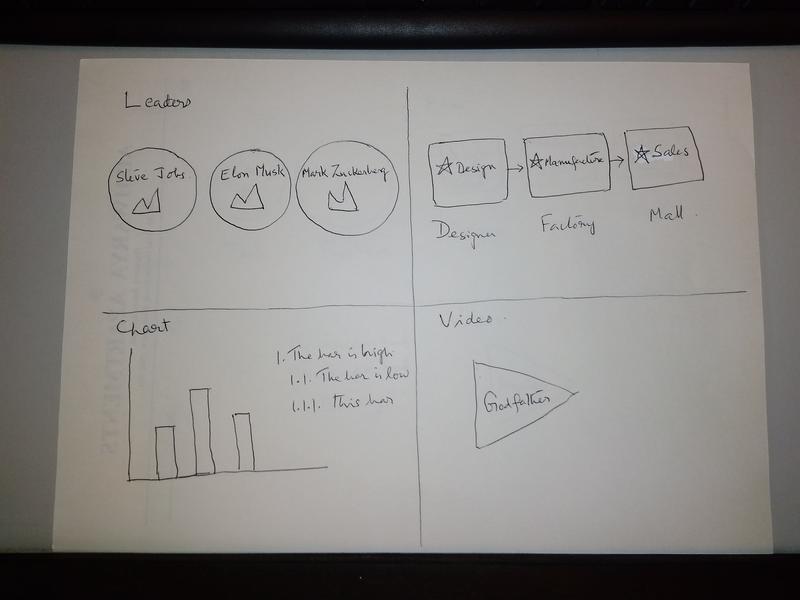 Leaders
Steve Jobs
Elon Musk
Mark Zuckerberg
Design
Manufacture
Sales
Designer
Factory
Mall.
Chart
1. The bar is high
1.1. The bar is low
1.1.1. This bar
Video.
Godfather